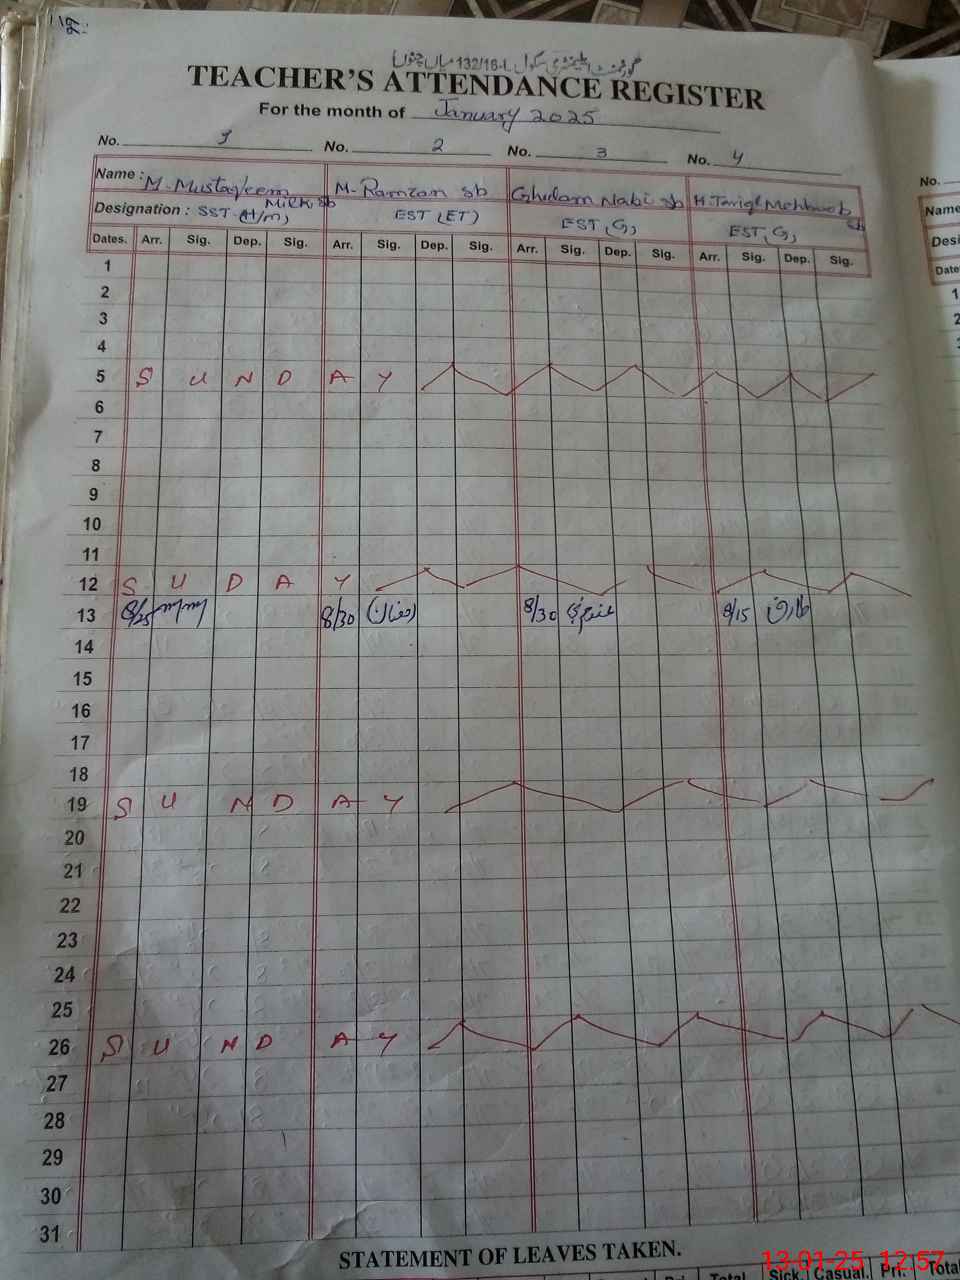 گورنمنٹ ایلیمنٹری سکول 132/16-L میاں چنوں
TEACHER'S ATTENDANCE REGISTER
For the month of January 2025
No. 1 No. 2 No. 3 No. 4 No.
Name: M. Mustaqeem M. Ramzan sb Ghulam Nabi sb H. Tariq Mehboob sb Name
Designation: SST (H/M) EST (ET) EST (G) EST (G) Desi
Dates. Arr. Sig. Dep. Sig. Arr. Sig. Dep. Sig. Arr. Sig. Dep. Sig. Arr. Sig. Dep. Sig. Date
1
2
3
4
5 S U N D A Y
6
7
8
9
10
11
12 S U D A Y
13 8/25 8/30 رمضان 8/30 8/15 طارق
14
15
16
17
18
19 S U N D A Y
20
21
22
23
24
25
26 S U N D A Y
27
28
29
30
31
STATEMENT OF LEAVES TAKEN.
Total Sick. Casual. Pri. Total
13-01-25 12:57